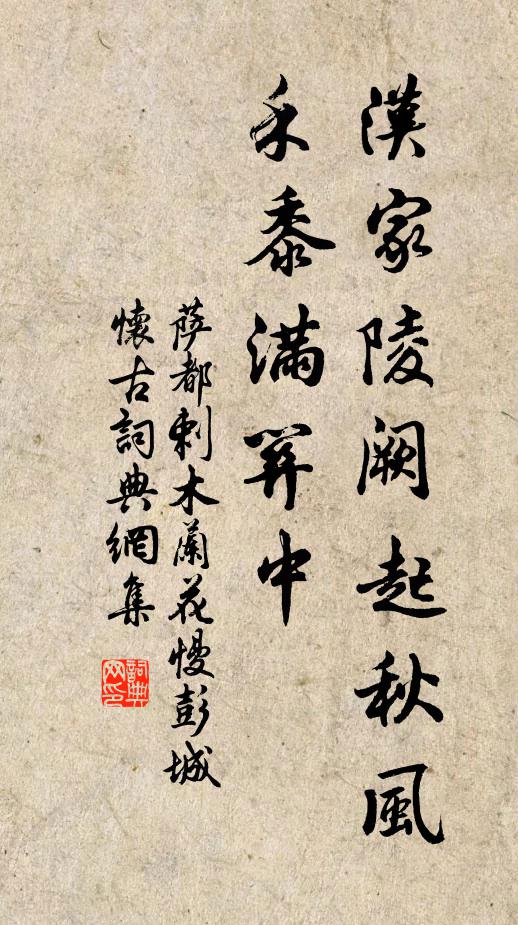 漢家陵阙起秋風
禾黍滿关中
萨都剌木蘭花慢彭城
懷古詞典網集
詞典
网印